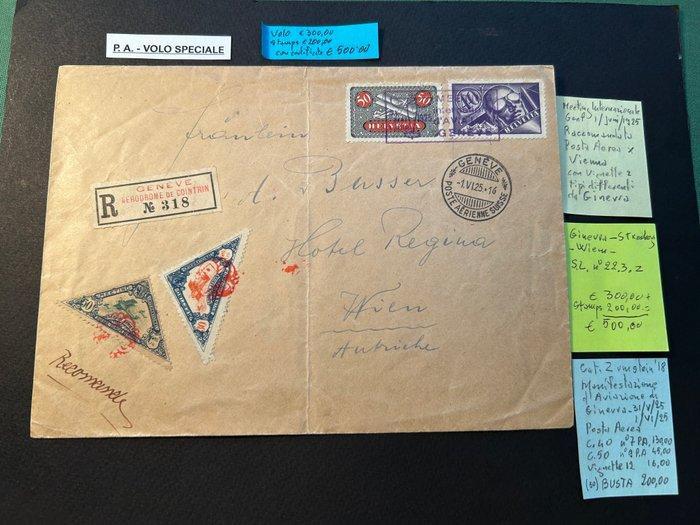 P. A. - VOLO SPECIALE
Volo € 300,00
Stamps € 200,00
con certificato € 500.00
Fräulein
d. Busser
Hotel Regina
Wien
Autriche
Recomandé
R
GENÈVE
AÉRODROME DE COINTRIN
№ 318
50
HELVETIA
40
HELVETIA
GENÈVE
-1.VI.25.-16
POSTE AÉRIENNE SUISSE
MEETING
Meeting Internazionale
1/Juni/1925
Raccomandata
Posta Aerea x
Vienna
con vignette 2
tipi differenti
di Ginevra
Ginevra -
- Wien -
S.L. n° 22.3.2
€ 300,00 +
Stamps 200,00 =
€ 500,00
Cat. Zumstein '18
Manifestazione
d'Aviazione di
Ginevra - 31/V/25
1/VI/25
Posta Aerea
C. 40 n° 7 P.A. 130,00
C. 50 n° 9 P.A 45,00
Vignette 12 16,00
BUSTA 200,00